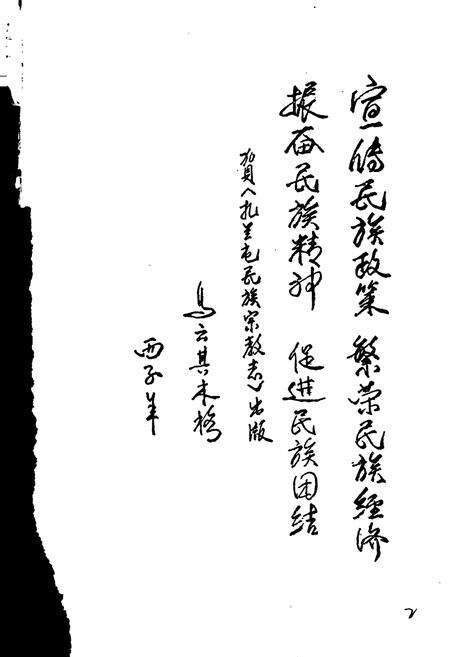 宣传民族政策 繁荣民族经济
振奋民族精神 促进民族团结
贺《扎兰屯民族宗教志》出版
乌云其木格
丙子年
2